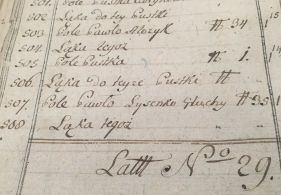 502. Łąka do tey Pustki
503. Pole Pawło # 34
504. Łąka tegoż
505 Pole Pustka # 1.
506. Łąka do teyże Pustki #
507. Pole Pawło Łysenko Głuchy # 35
508 Łąka tegoż
Latt No 29.